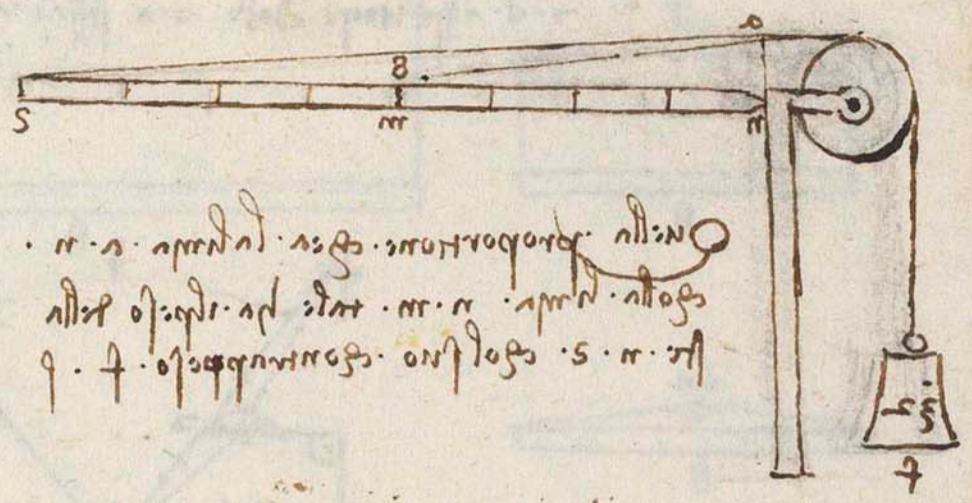 a
8
s m n
Quella proportione. chea. lalinia .a. n .
cholla .linia .n. m. tale ha .ilpeso della
sste .n. s. cholsuo chontrappeso. f .
f